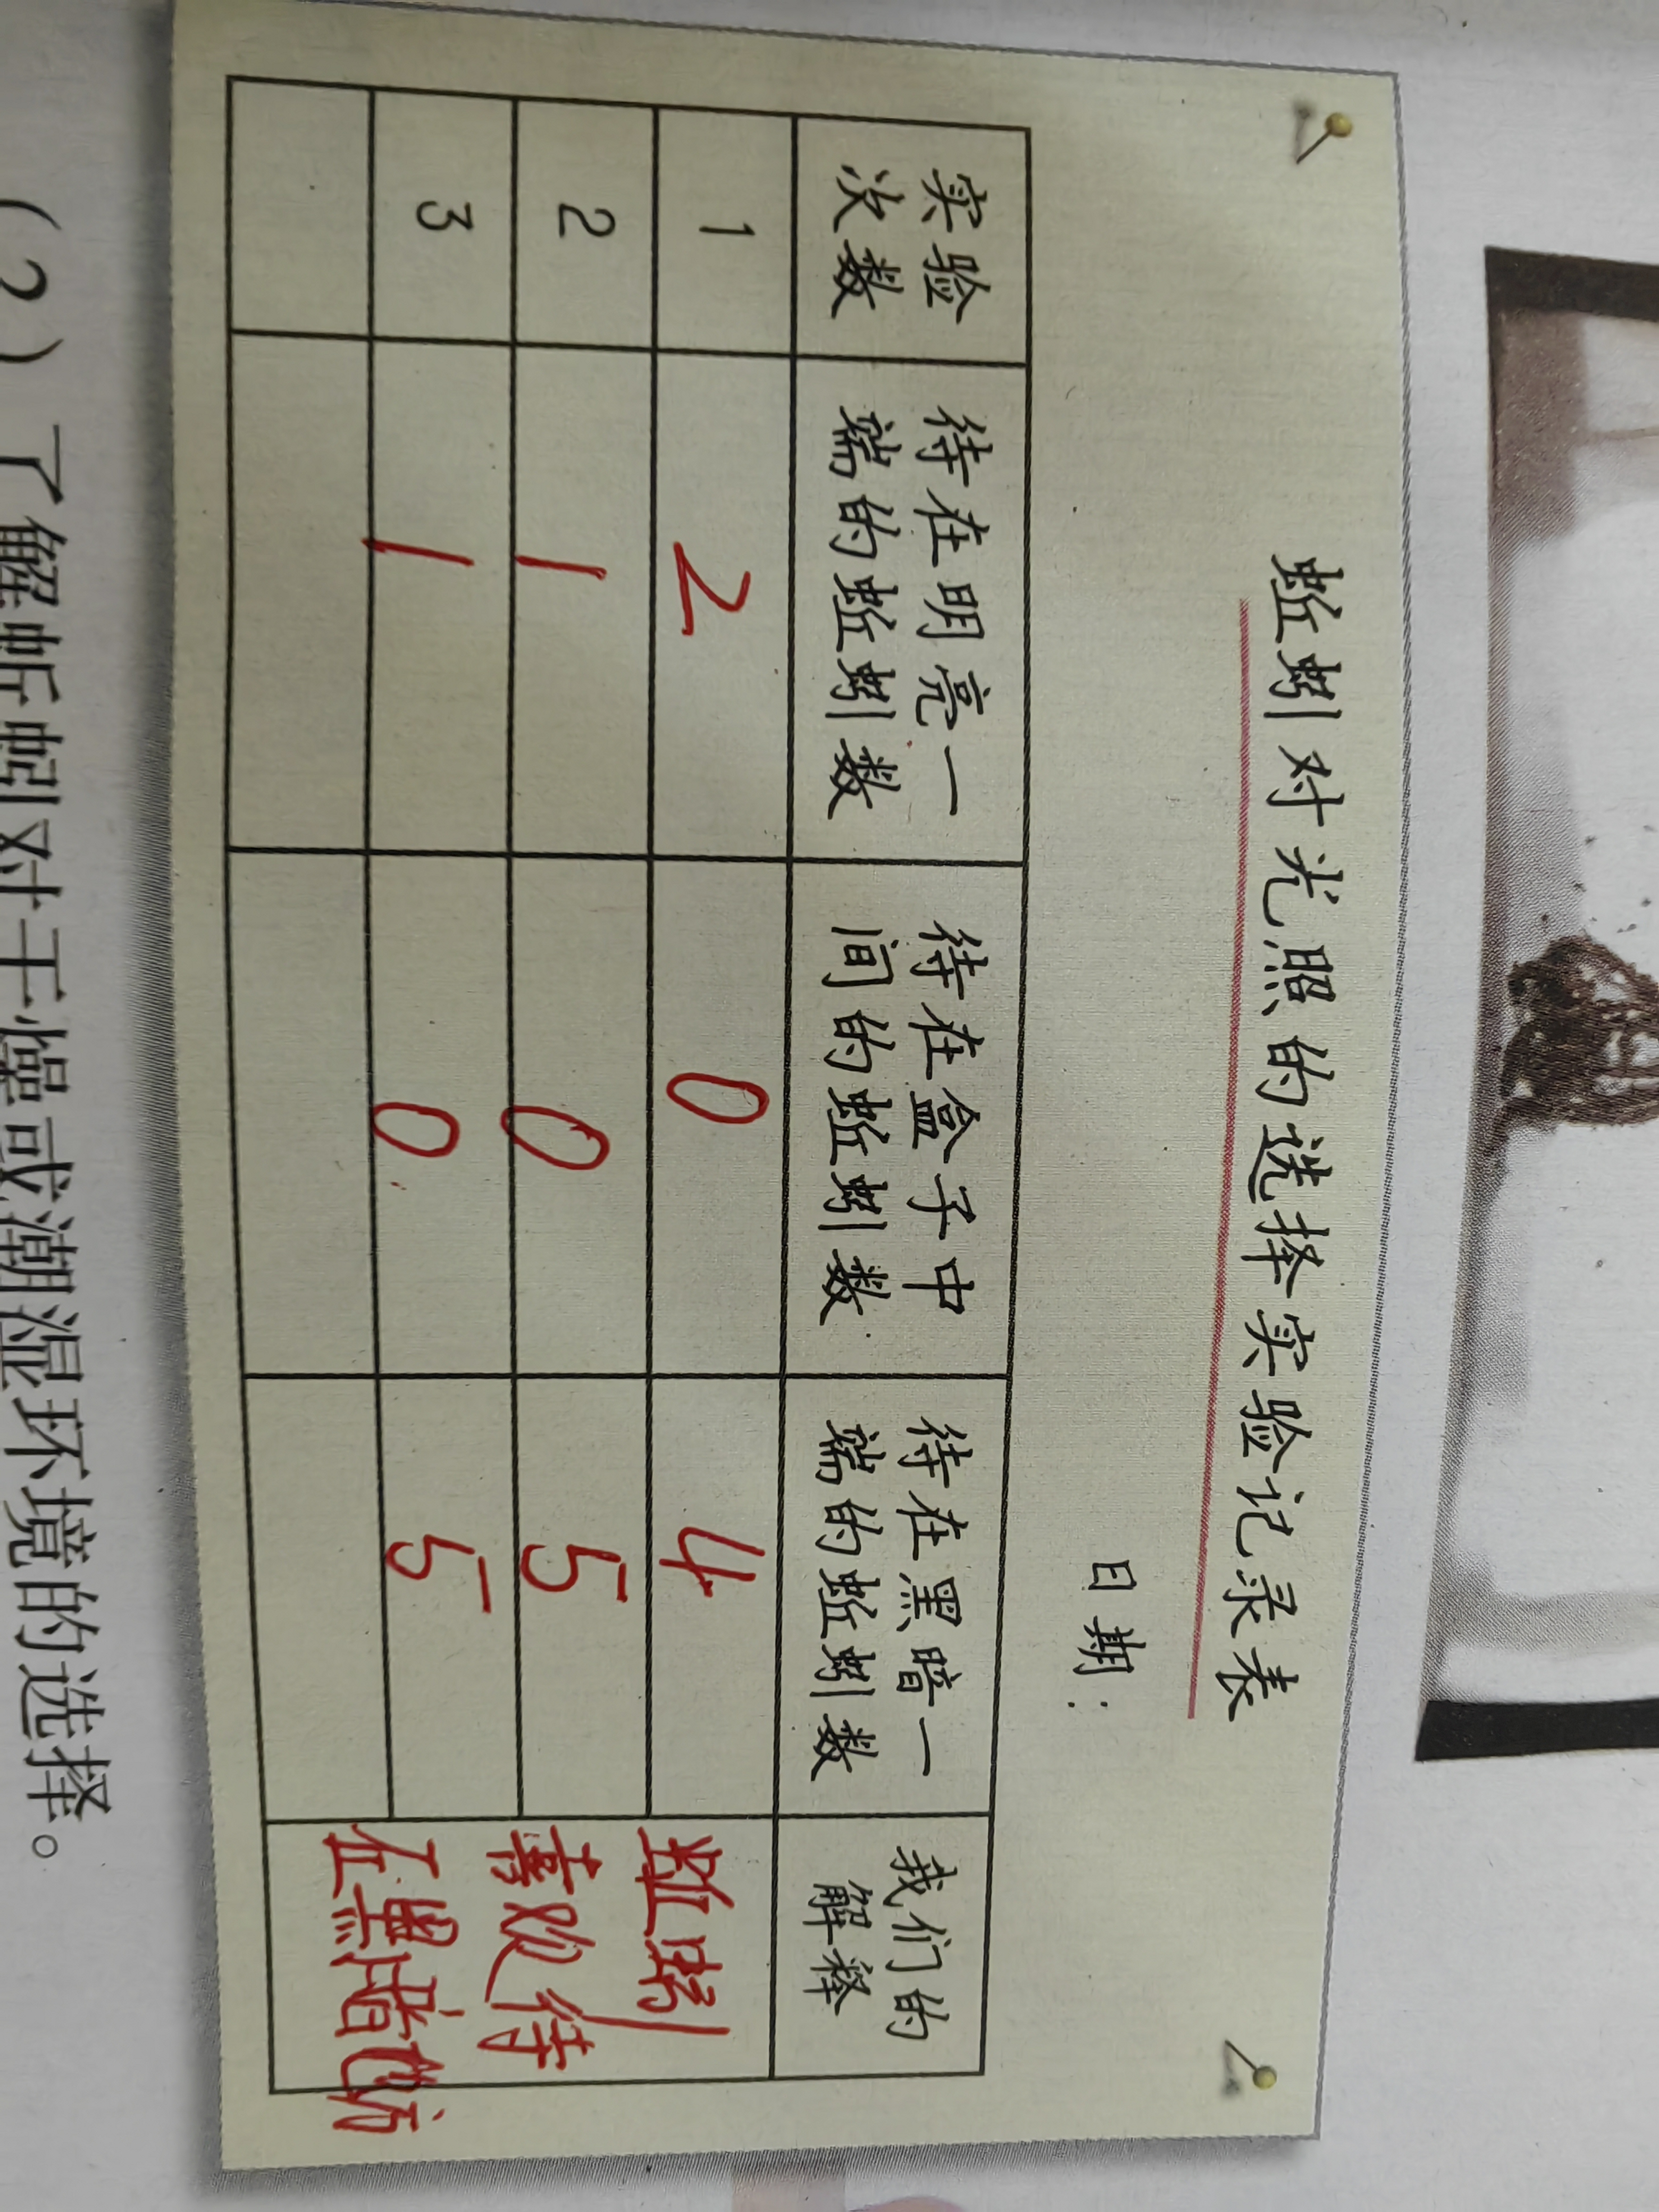 蚯蚓对光照的选择实验记录表
日期：
实验次数 待在明亮一端的蚯蚓数 待在盒子中间的蚯蚓数 待在黑暗一端的蚯蚓数 我们的解释
1 2 0 4 蚯蚓
2 1 0 5 喜欢待
3 1 0 5 在黑暗的
（2）了解蚯蚓对干燥或潮湿环境的选择。